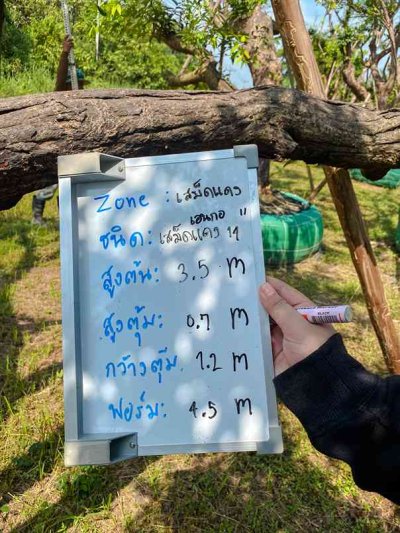 Zone : เสม็ดแดง
เฮนกอ
ชนิด : เสม็ดแดง 14"
สูงต้น : 3.5 m
สูงตุ้ม : 0.7 m
กว้างตุ้ม. 1.2 m
ฟอร์ม : 4.5 m